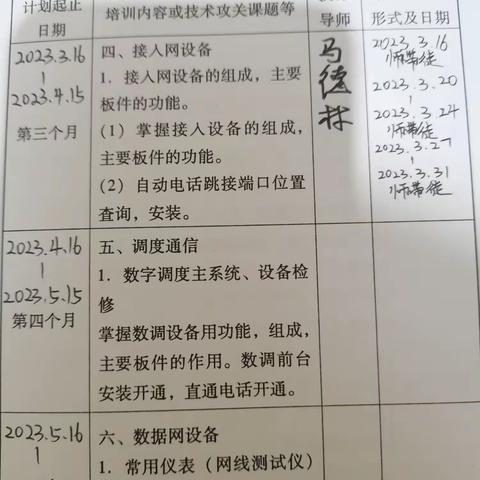 计划起止
日期
培训内容或技术攻关课题等
导师
形式及日期
2023.3.16
2023.4.15
第三个月
四、接入网设备
1．接入网设备的组成，主要
板件的功能。
（1）掌握接入设备的组成，
主要板件的功能。
（2）自动电话跳接端口位置
查询，安装。
马德林
2023.3.16
师带徒
2023.3.20
2023.3.24
师带徒
2023.3.27
2023.3.31
师带徒
2023.4.16
2023.5.15
第四个月
五、调度通信
1．数字调度主系统、设备检
修
掌握数调设备用功能，组成，
主要板件的作用。数调前台
安装开通，直通电话开通。
2023.5.16
六、数据网设备
1．常用仪表（网线测试仪）